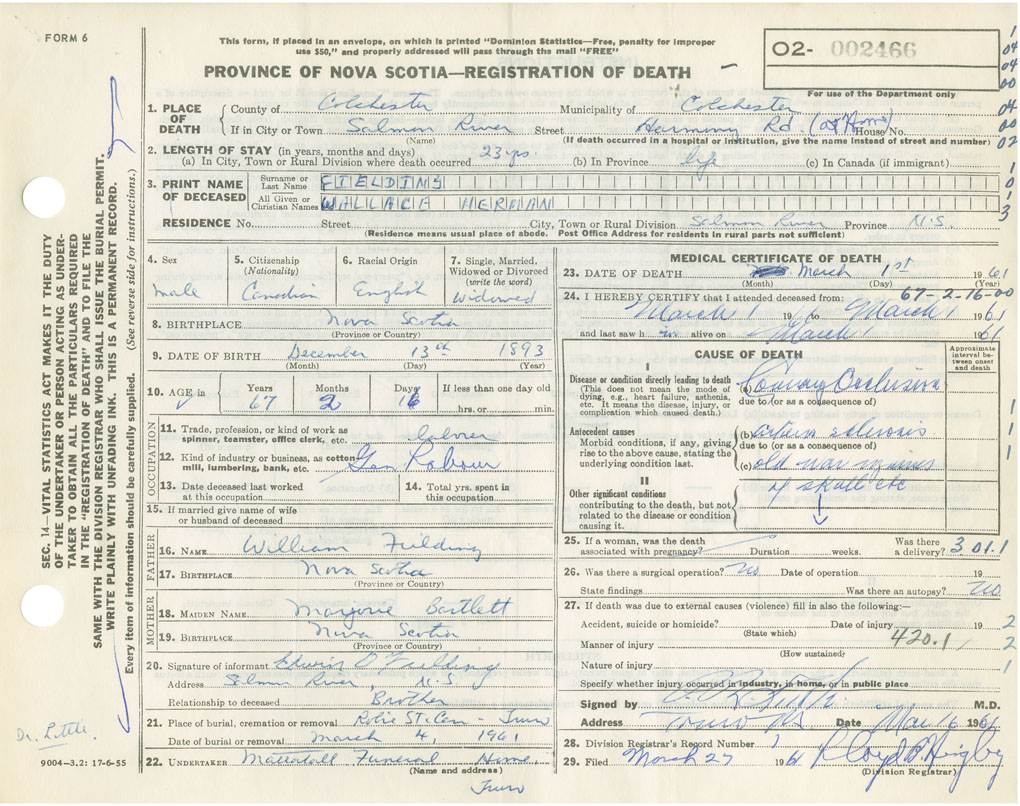 FORM 6
This form, if placed in an envelope, on which is printed "Dominion Statistics—Free, penalty for improper
use $50," and properly addressed will pass through the mail "FREE"
PROVINCE OF NOVA SCOTIA—REGISTRATION OF DEATH
02- 002466
For use of the Department only
1. PLACE OF DEATH
County of Colchester Municipality of Colchester
If in City or Town Salmon River Street Harmony Rd. (at Home) House No.
(Name) (If death occurred in a hospital or institution, give the name instead of street and number)
2. LENGTH OF STAY (in years, months and days)
(a) In City, Town or Rural Division where death occurred 23 yrs. (b) In Province life (c) In Canada (if immigrant)
3. PRINT NAME OF DECEASED
Surname or Last Name FIELDING
All Given or Christian Names WALLACE HERMAN
RESIDENCE No. Street City, Town or Rural Division Salmon River Province N.S.
(Residence means usual place of abode. Post Office Address for residents in rural parts not sufficient)
4. Sex male
5. Citizenship (Nationality) Canadian
6. Racial Origin English
7. Single, Married, Widowed or Divorced (write the word) Widowed
8. BIRTHPLACE Nova Scotia
(Province or Country)
9. DATE OF BIRTH December 13th 1893
(Month) (Day) (Year)
10. AGE in Years 67 Months 2 Days 16 If less than one day old hrs. or min.
OCCUPATION
11. Trade, profession, or kind of work as spinner, teamster, office clerk, etc. laborer
12. Kind of industry or business, as cotton mill, lumbering, bank, etc. Gen Labour
13. Date deceased last worked at this occupation
14. Total yrs. spent in this occupation
15. If married give name of wife or husband of deceased
FATHER
16. NAME William Fielding
17. BIRTHPLACE Nova Scotia
(Province or Country)
MOTHER
18. MAIDEN NAME Marjorie Bartlett
19. BIRTHPLACE Nova Scotia
(Province or Country)
20. Signature of informant Edwin D Fielding
Address Salmon River, N-S
Relationship to deceased Brother
21. Place of burial, cremation or removal Robie St. Cem - Truro
Date of burial or removal March 4, 1961
22. UNDERTAKER Mattatall Funeral Home
(Name and address)
Truro
MEDICAL CERTIFICATE OF DEATH
23. DATE OF DEATH March 1st 1961
(Month) (Day) (Year)
67-2-16-00
24. I HEREBY CERTIFY that I attended deceased from:
March 1 196 to March 1 1961
and last saw h im alive on March 1 1961
CAUSE OF DEATH
Approximate interval between onset and death
I
Disease or condition directly leading to death
(This does not mean the mode of dying, e.g., heart failure, asthenia, etc. It means the disease, injury, or complication which caused death.)
(a) Coronary Occlusion
due to (or as a consequence of)
Antecedent causes
Morbid conditions, if any, giving rise to the above cause, stating the underlying condition last.
(b)
due to (or as a consequence of)
(c) old war injuries
of skull etc
II
Other significant conditions
contributing to the death, but not related to the disease or condition causing it.
25. If a woman, was the death associated with pregnancy? Duration weeks. Was there a delivery? 301.1
26. Was there a surgical operation? No Date of operation 19
State findings Was there an autopsy? No
27. If death was due to external causes (violence) fill in also the following:—
Accident, suicide or homicide? Date of injury 19
(State which)
420.1
Manner of injury
(How sustained)
Nature of injury
Specify whether injury occurred in industry, in home, or in public place
Signed by M.D.
Address Truro NS Date Mar 6 1961
28. Division Registrar's Record Number
29. Filed March 27 1961 Lloyd P. Higby
(Division Registrar)
SEC. 14—VITAL STATISTICS ACT MAKES IT THE DUTY
OF THE UNDERTAKER OR PERSON ACTING AS UNDER-
TAKER TO OBTAIN ALL THE PARTICULARS REQUIRED
IN THE "REGISTRATION OF DEATH" AND TO FILE THE
SAME WITH THE DIVISION REGISTRAR WHO SHALL ISSUE THE BURIAL PERMIT.
WRITE PLAINLY WITH UNFADING INK. THIS IS A PERMANENT RECORD.
Every item of information should be carefully supplied. (See reverse side for instructions.)
Dr. Little.
9004—3.2: 17-6-55
1
04
04
00
04
00
02
1
0
1
3
1
1
1
2
2
1